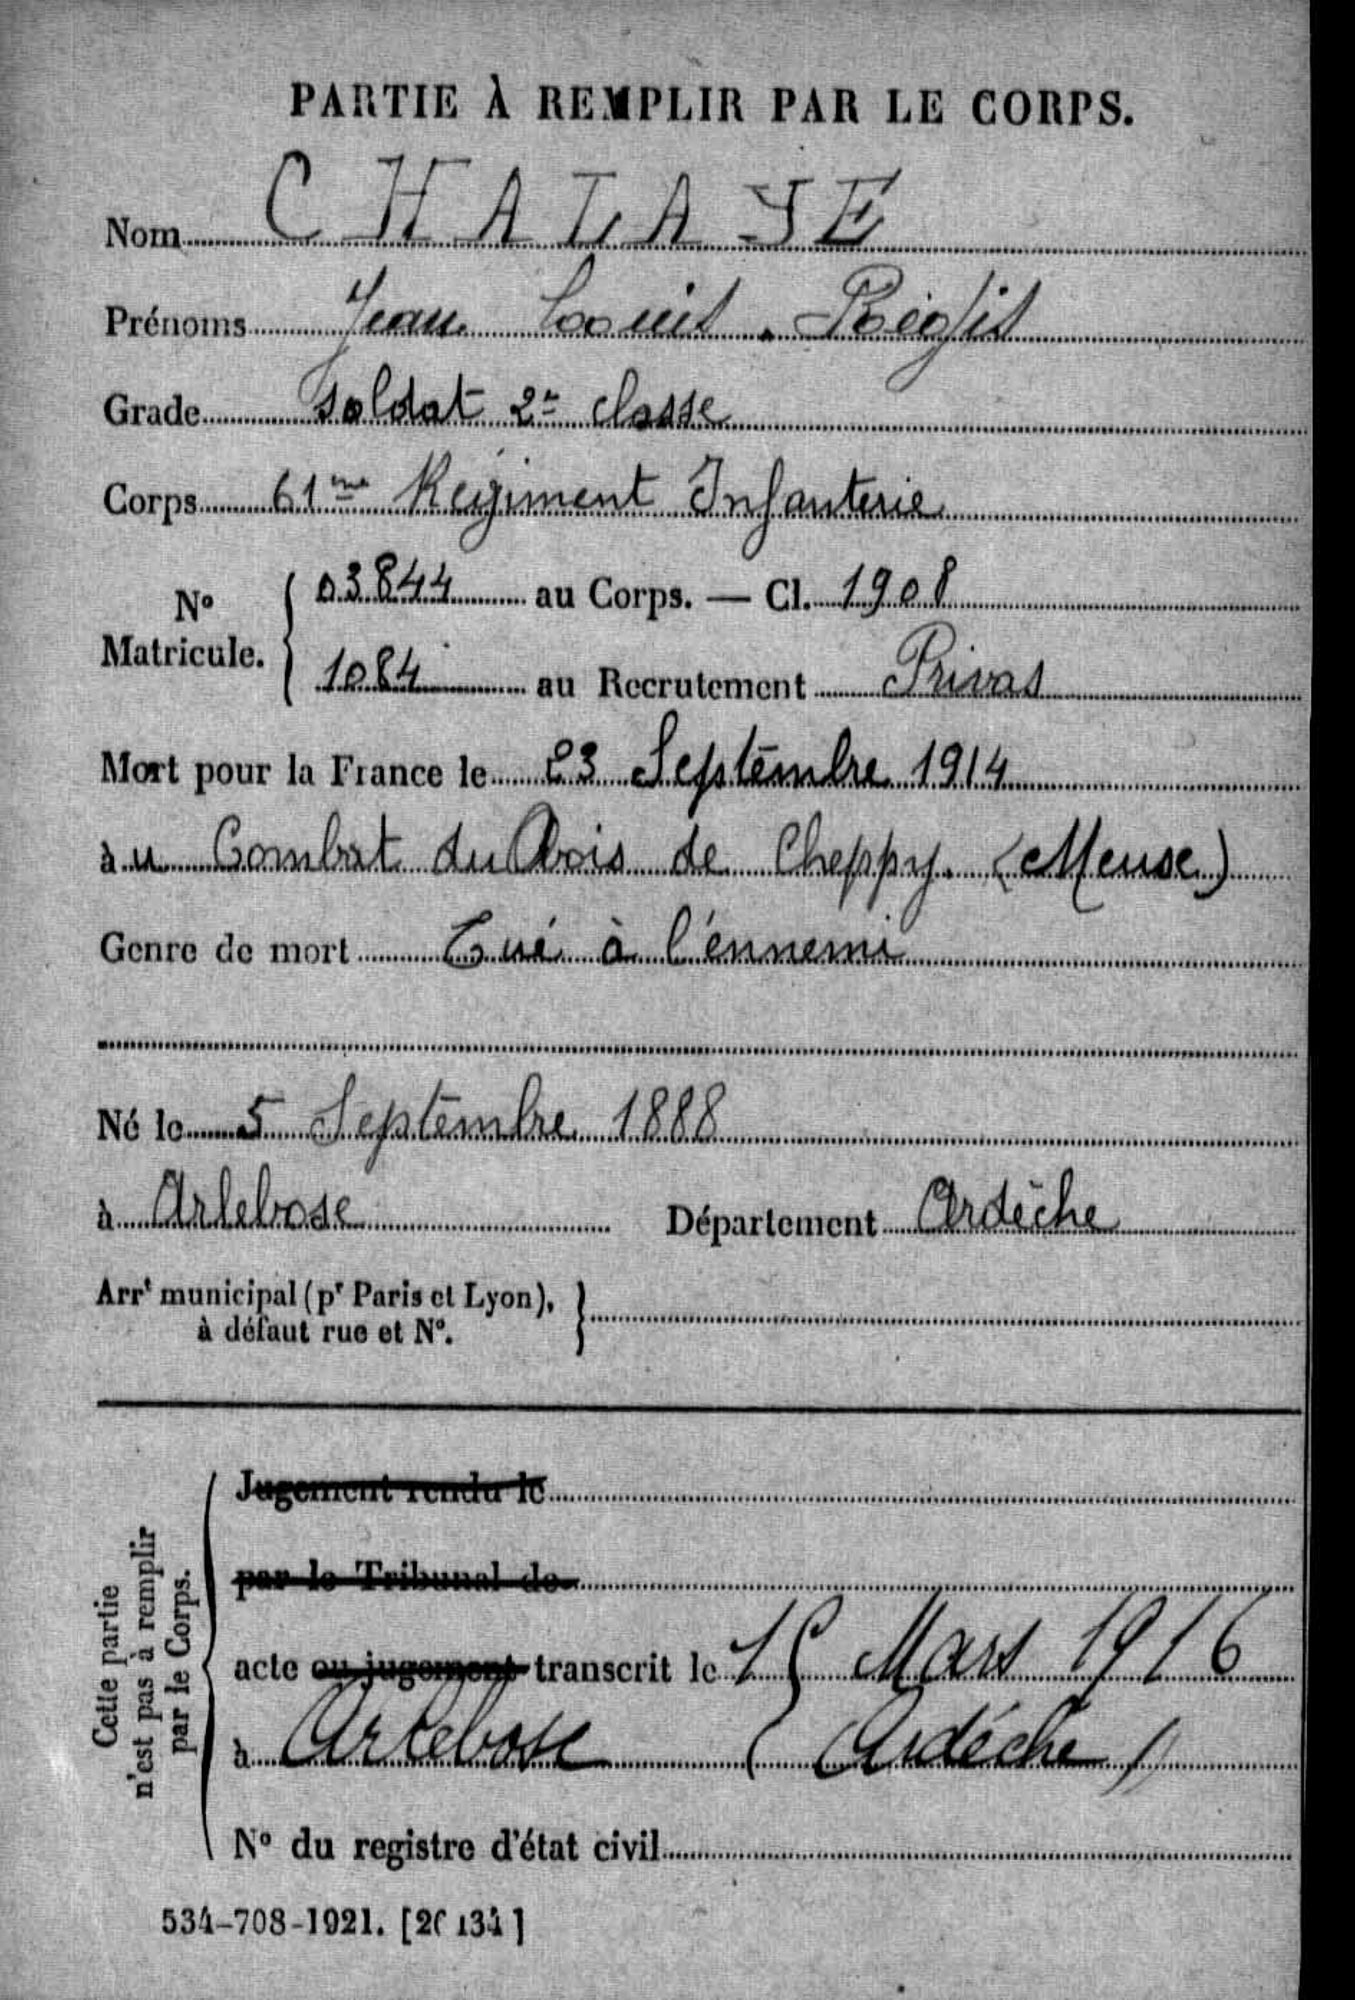 PARTIE À REMPLIR PAR LE CORPS.
Nom CHALAYE
Prénoms Jean Louis Régis
Grade soldat 2e classe
Corps 61me Régiment Infanterie
No Matricule. 03844 au Corps. — Cl. 1908
1084 au Recrutement Privas
Mort pour la France le 23 Septembre 1914
à u Combat du Bois de Cheppy. (Meuse)
Genre de mort Tué à l'ennemi
Né le 5 Septembre 1888
à Arlebosc Département Ardèche
Arrt municipal (pr Paris et Lyon),
à défaut rue et No.
Cette partie
n'est pas à remplir
par le Corps.
Jugement rendu le
par le Tribunal de
acte ou jugement transcrit le 15 Mars 1916
à Arlebosc (Ardèche)
No du registre d'état civil
534-708-1921. [26134]